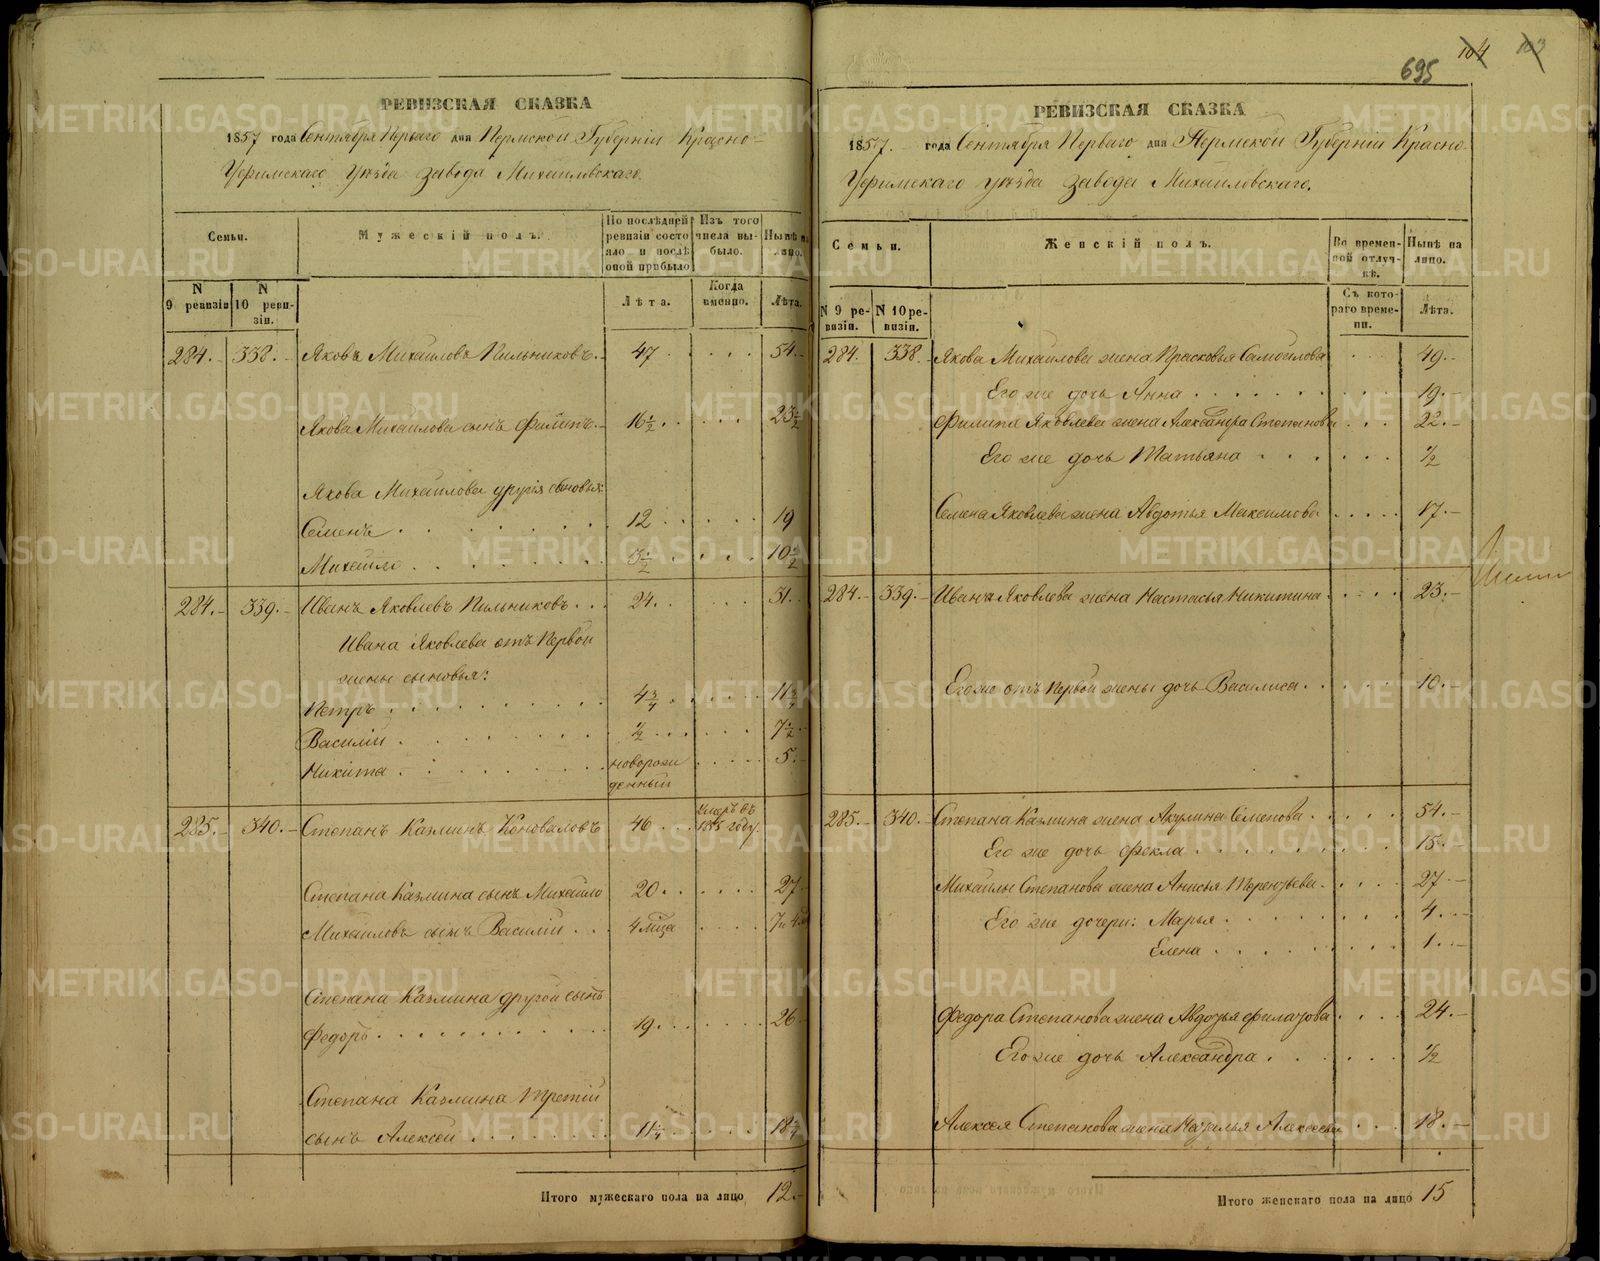 695 104 103
РЕВИЗСКАЯ СКАЗКА
1857 года Сентября Перваго дня Пермской Губерніи Красно-
Уфимскаго уѣзда завода Михайловскаго.
Семьи.
Мужескій полъ.
По послѣдней ревизіи состояло и послѣ оной прибыло
Изъ того числа выбыло.
Нынѣ на лицо.
N 9 ревизіи
N 10 ревизіи.
Лѣта.
Когда именно.
Лѣта.
284. 338. Яковъ Михайловъ Пильниковъ. 47 54.
Якова Михайлова сынъ Филипъ. 16 1/2 23 1/2
Якова Михайлова другія сыновья:
Семенъ 12 19
Михайло 3 1/2 10 1/2
284. 339. Иванъ Яковлевъ Пильниковъ 24. 31.
Ивана Яковлева отъ Первой
жены сыновья:
Петръ 4 3/4 11 3/4
Василій 1/2 7 1/2
Никита новорожденный 5.
285. 340. Степанъ Казминъ Коноваловъ 46 умеръ въ 1855 году.
Степана Казмина сынъ Михайло 20. 27
Михайловъ сынъ Василій 4 м̃ца 7 и 4
Степана Казмина другой сынъ
Федоръ 19. 26
Степана Казмина третій
сынъ Алексей 11 1/4 18 1/4
Итого мужескаго пола на лицо 12.
РЕВИЗСКАЯ СКАЗКА
1857. года Сентября Перваго дня Пермской Губерніи Красно
Уфимскаго уѣзда завода Михайловскаго.
Семьи.
Женскій полъ.
Во временной отлучкѣ.
Нынѣ на лицо.
N 9 ревизіи.
N 10 ревизіи.
Съ котораго времени.
Лѣта.
284. 338. Якова Михайлова жена Прасковья Самойлова 49.
Его же дочь Анна 19.
Филипа Яковлева жена Александра Степанова 22.
Его же дочь Татьяна 1/2
Семена Яковлева жена Авдотья Максимова 17.
284. 339. Ивана Яковлева жена Настасья Никитина 23.
Его же отъ Первой жены дочь Василиса 10.
285. 340. Степана Казмина жена Акулина Семенова 54.
Его же дочь Фекла 15.
Михайлы Степанова жена Анисья Терентьева 27
Его же дочери: Марья 4
Елена 1.
Федора Степанова жена Авдотья Филатова 24.
Его же дочь Александра 1/2
Алексея Степанова жена Наталья Алексеева 18.
Итого женскаго пола на лицо 15
METRIKI.GASO-URAL.RU